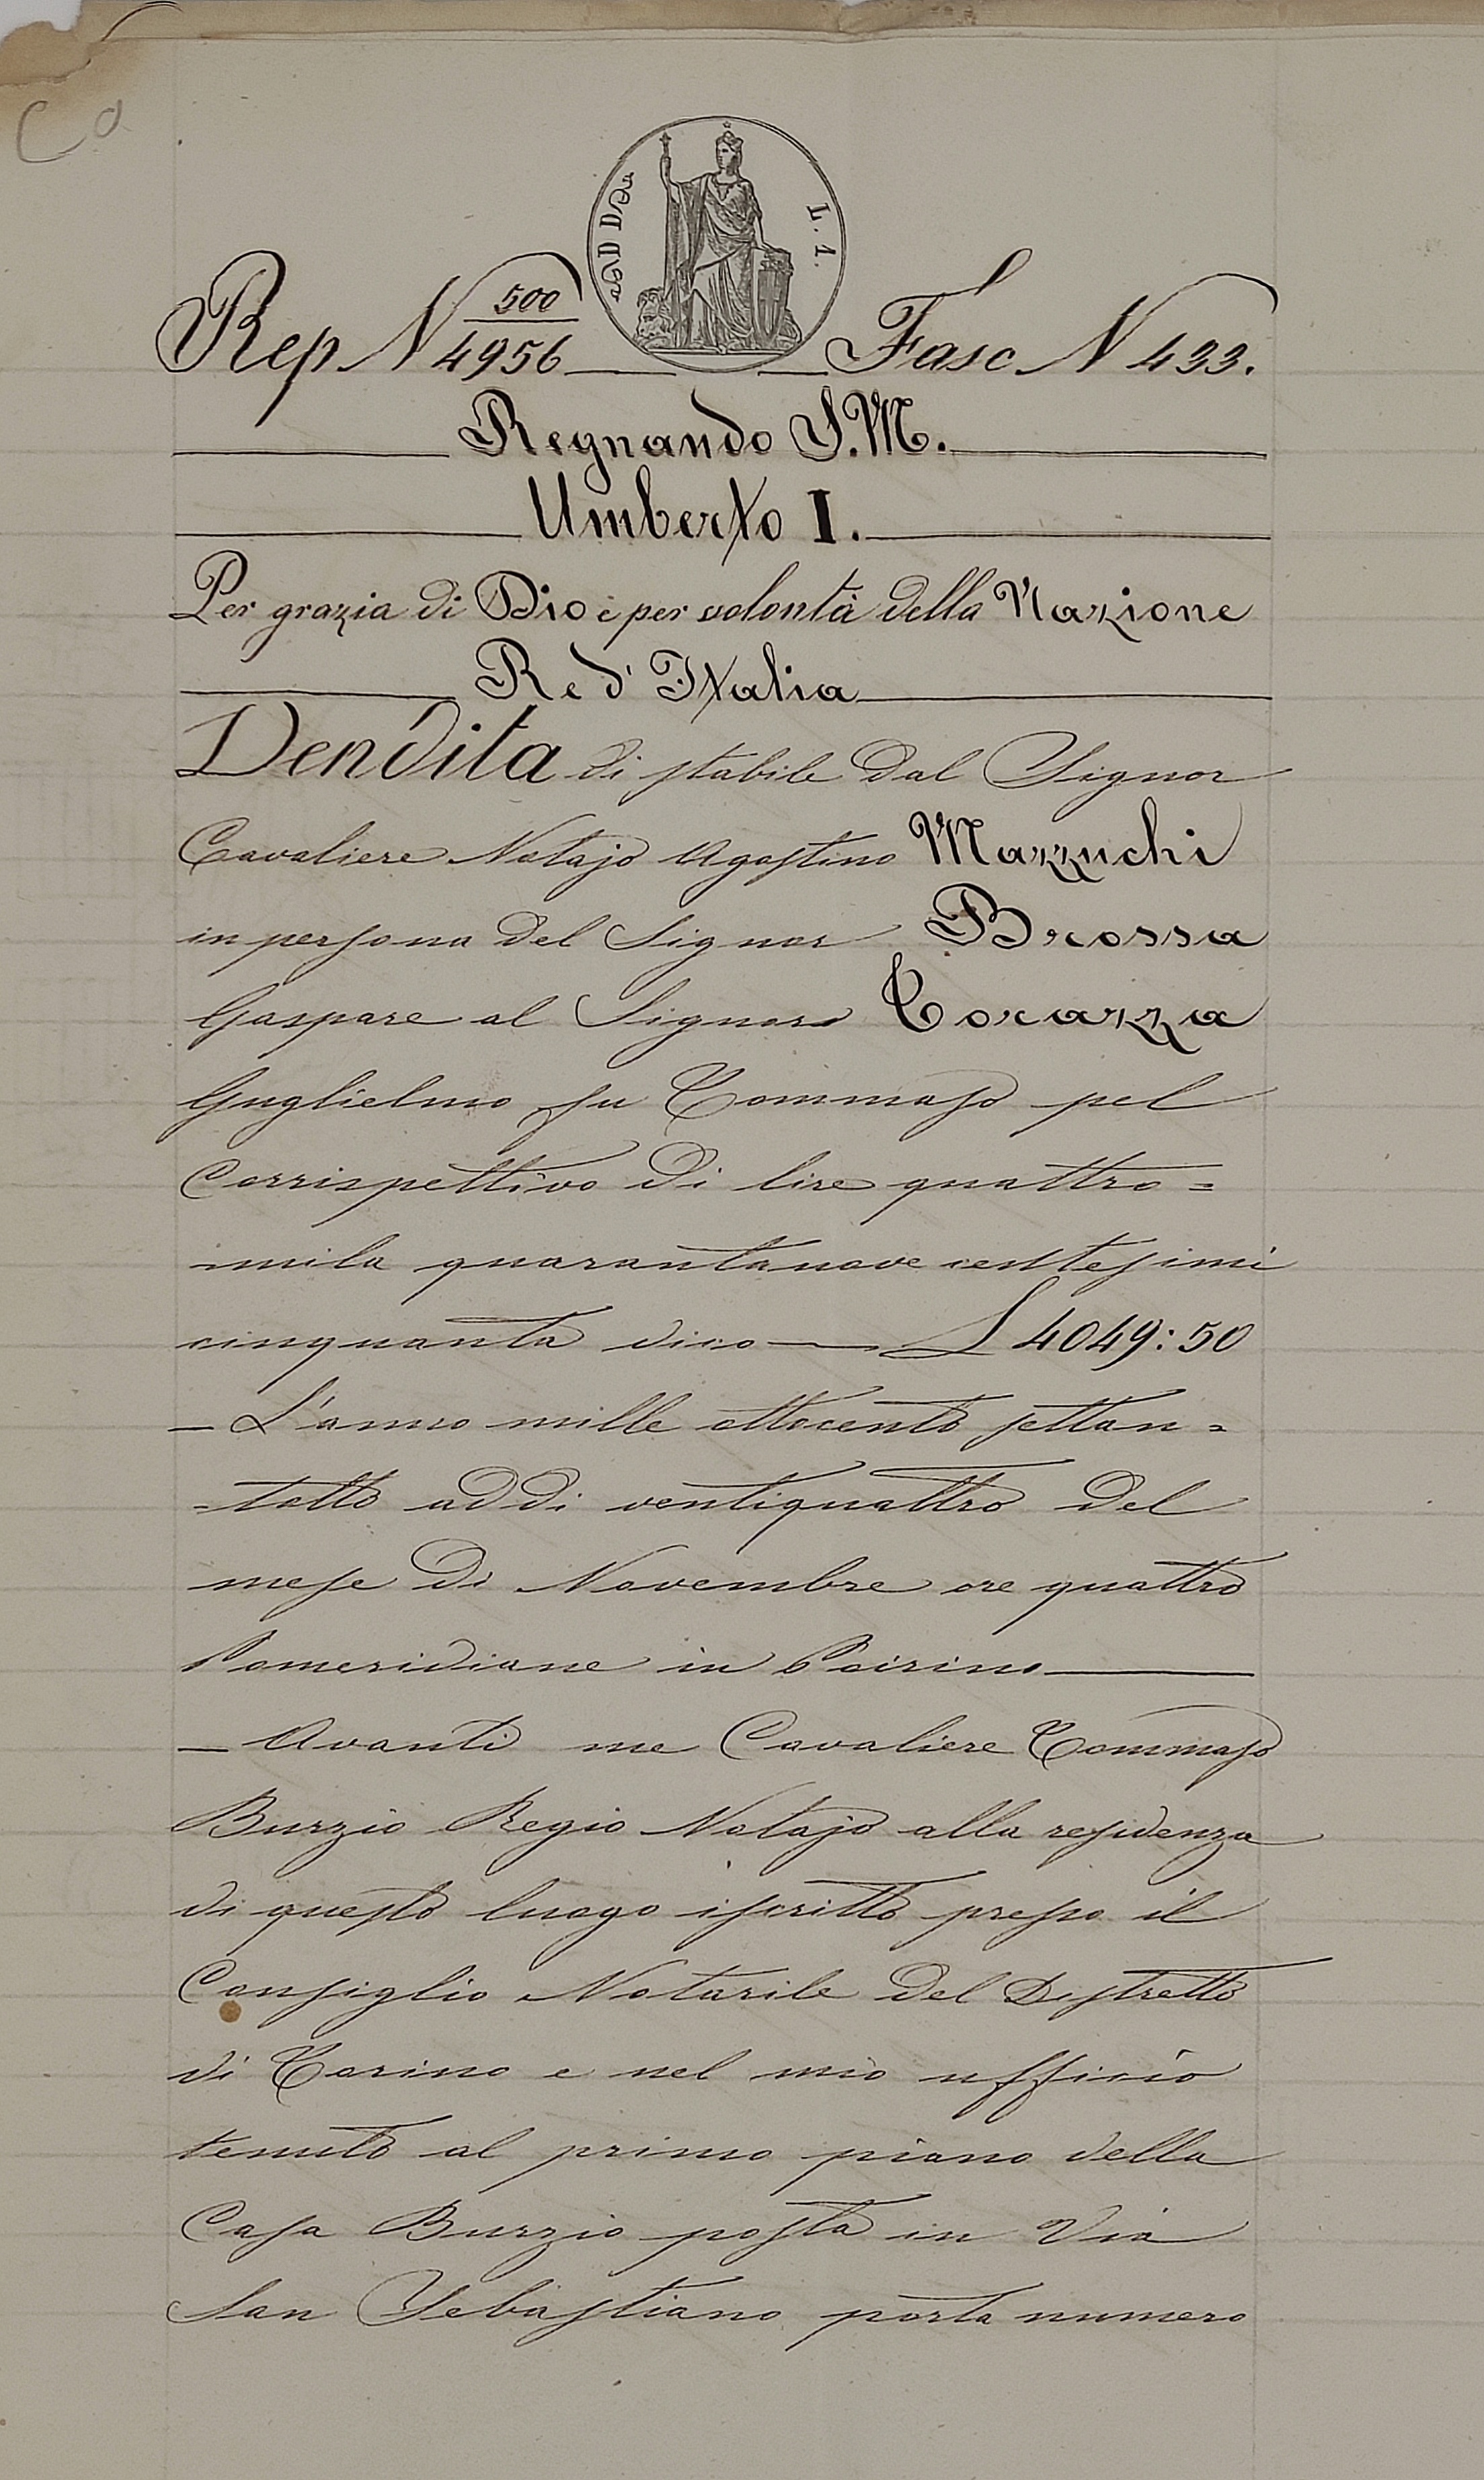 Co
L. 1.
500
Rep N 4956 Fasc N 433.
Regnando S.M.
Umberto I.
Per grazia di Dio e per volontà della Nazione
Re d'Italia
Vendita di stabile dal Signor
Cavaliere Notajo Agostino Mazzuchi
in persona del Signor Brossa
Gaspare al Signor Torazza
Guglielmo fu Tommaso pel
Corrispettivo di lire quattro=
=mila quarantanove centesimi
cinquanta dico — L 4049:50
— L'anno mille ottocento settan=
=totto addi ventiquattro del
mese di Novembre ore quattro
Pomeridiane in Poirino —
— Avanti me Cavaliere Tommaso
Burzio Regio Notajo alla residenza
di questo luogo iscritto presso il
Consiglio Notarile del Distretto
di Torino e nel mio ufficio
tenuto al primo piano della
Casa Burzio posta in Via
San Sebastiano porta numero